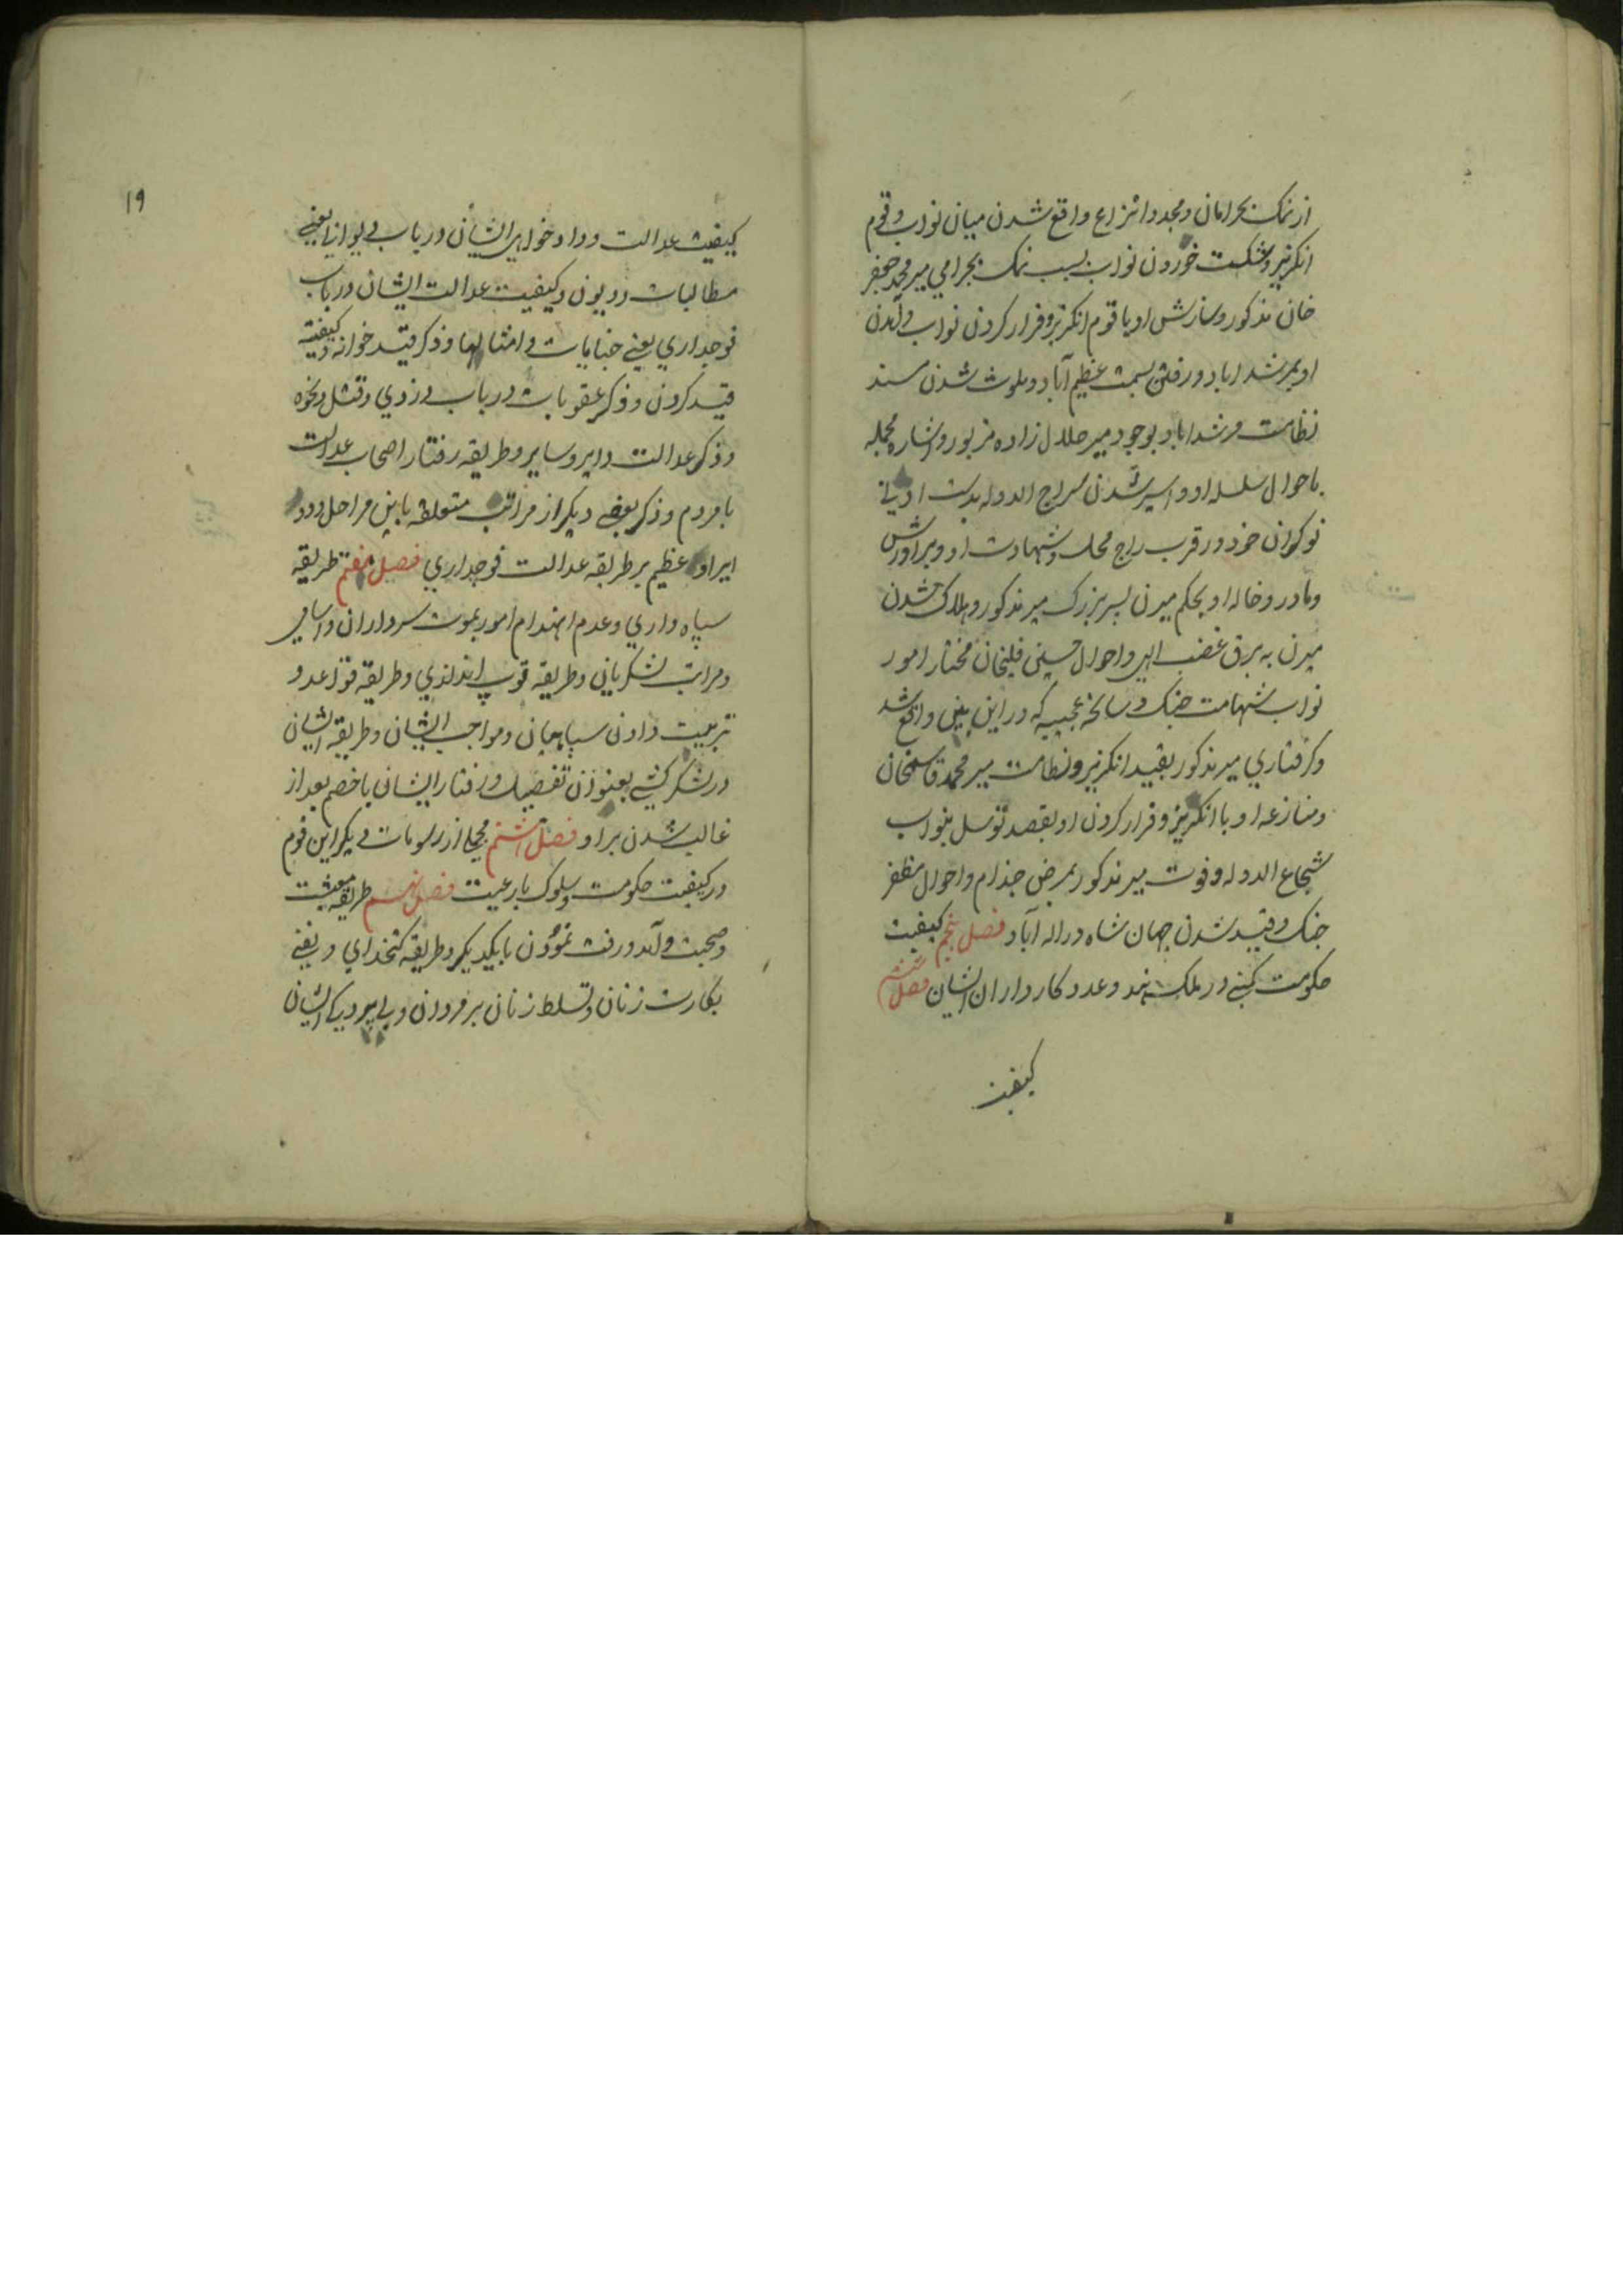 از نمک بحرامان و مجددا نزاع واقع شدن میان نواب و قوم
انکریز و شکست خوردن نواب بسبب نمک بحرامی میر محمد جعفر
خان مذکور و سازش او با قوم انکریز و فرار کردن نواب و آمدن
او بمرشداباد و رفتن بسمت عظیم آباد و ملوث شدن مسند
نظامت مرشداباد بوجود میر حلال زاده مزبور و اشاره مجمله
باحوال سلسله او و اسیر شدن سراج الدوله بدست ادنی
نوکران خود در قرب راج محل و شهادت او و برادرش
و مادر و خاله او بحکم میرن پسر بزرک میر مذکور و هلاک شدن
میرن به برق غضب الهی و احوال حسینی قلیخان مختار امور
نواب شهامت جنک و سانحه عجیبه که در این بین واقع شد
و کرفتاری میر مذکور بقید انکریز و نظامت میر محمد قاسمخان
و منازعه او با انکریز و فرار کردن او بقصد توسل بنواب
شجاع الدوله و فوت میر مذکور بمرض جذام و احوال مظفر
جنک و قید شدن جهان شاه در اله آباد فصل پنجم کیفیت
حکومت کمپنی در ملک هند و عدد کارداران ایشان فصل ششم
کیفیت
۱۹
کیفیت عدالت و داد خواهی ایشان در باب دیوانی یعنی
مطالبات و دیون و کیفیت عدالت ایشان در باب
فوجداری یعنی جنایات و امثالها و ذکر قید خوانه و کیفیة
قید کردن و ذکر عقوبات در باب دزدی و قتل و نحوه
و ذکر عدالت دایر و سایر و طریقه رفتار اصحاب عدالت
با مردم و ذکر بعضی دیکر از مراتب متعلقه باین مراحل و ورود
ایراد عظیم بر طریقه عدالت فوجداری فصل هفتم طریقه
سپاه داری و عدم انهدام امور بموت سرداران و اسامی
و مراتب لشکریان و طریقه توپ اندازی و طریقه قواعد و
تربیت دادن سپاهیان و مواجب ایشان و طریقه ایشان
در لشکر کشی بعنوان تفصیل و رفتار ایشان با خصم بعد از
غالب شدن بر او فصل هشتم مجملی از رسومات دیکر این قوم
در کیفیت حکومت و سلوک با رعیت فصل نهم طریقه معیشت
و صحبت و آمد و رفت نمودن با یکدیکر و طریقه کتخدای و نفی
بکارت زنان و تسلط زنان بر مردان و بی پردکی ایشان